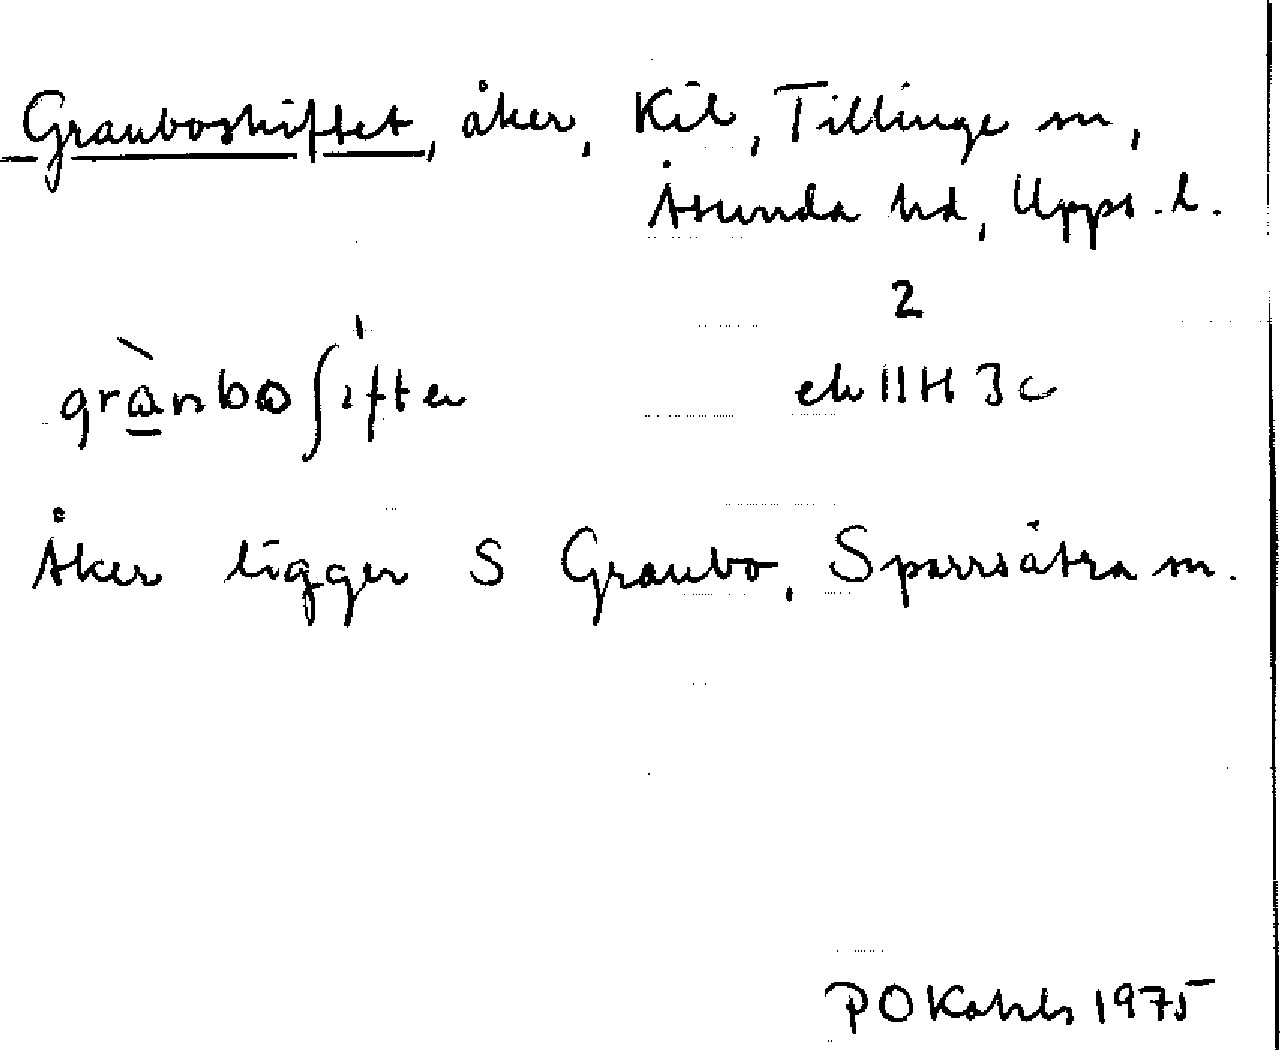 Grauboskiftet, åker, Kil, Tillinge sn,
Åsunda hd, Upps. l.
2
ek 11H 3c
Åker ligger S Graubo, Sparrsätra sn.
1975